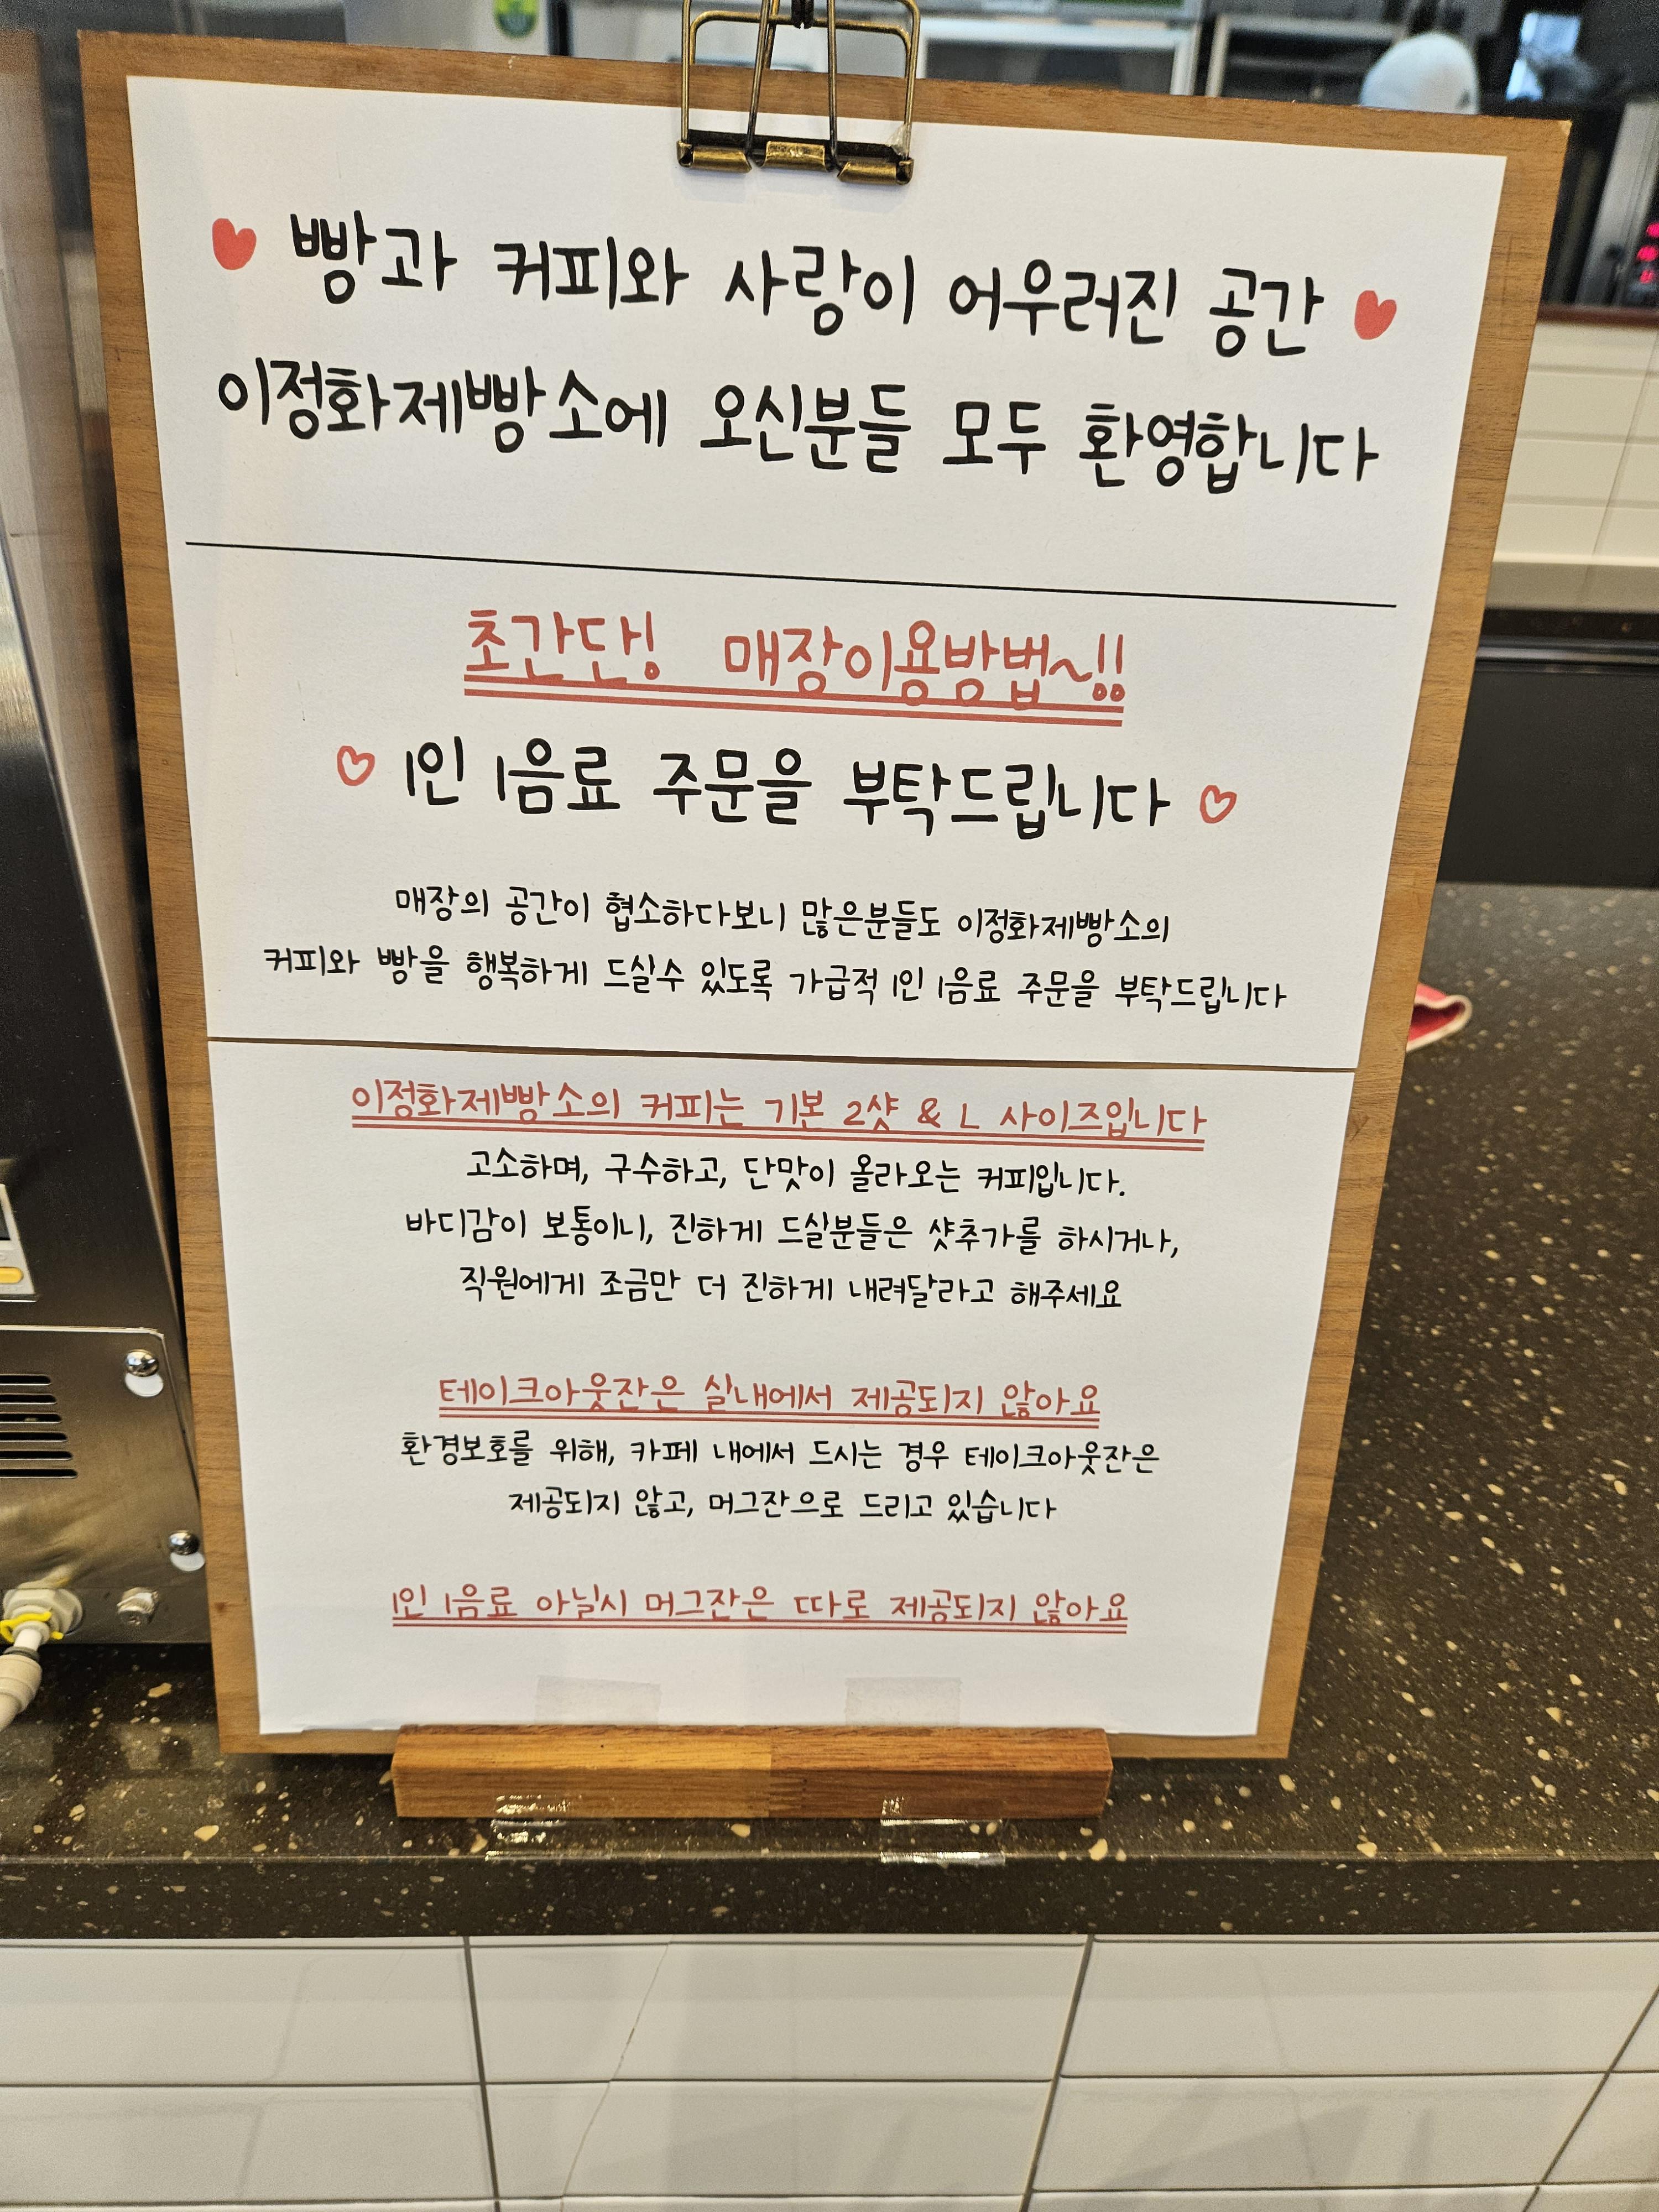 ♥ 빵과 커피와 사랑이 어우러진 공간 ♥
이정화제빵소에 오신분들 모두 환영합니다
초간단! 매장이용방법~!!
♡ 1인 1음료 주문을 부탁드립니다 ♡
매장의 공간이 협소하다보니 많은분들도 이정화제빵소의
커피와 빵을 행복하게 드실수 있도록 가급적 1인 1음료 주문을 부탁드립니다
이정화제빵소의 커피는 기본 2샷 & L 사이즈입니다
고소하며, 구수하고, 단맛이 올라오는 커피입니다.
바디감이 보통이니, 진하게 드실분들은 샷추가를 하시거나,
직원에게 조금만 더 진하게 내려달라고 해주세요
테이크아웃잔은 실내에서 제공되지 않아요
환경보호를 위해, 카페 내에서 드시는 경우 테이크아웃잔은
제공되지 않고, 머그잔으로 드리고 있습니다
1인 1음료 아닐시 머그잔은 따로 제공되지 않아요